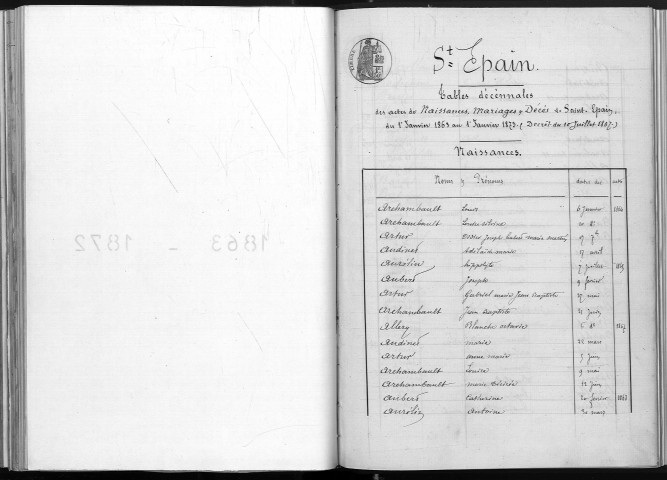 1863 - 1872
St Epain.
Tables décennales
des actes de Naissances, Mariages & Décès de Saint-Epain,
du 1er Janvier 1863 au 1er Janvier 1873 (Décret du 20 Juillet 1807.)
Naissances.
Noms & Prénoms dates des
Archambault Louis 6 Janvier
Archambault
Artur Marie Joseph
Audines Adélaïde Marie 17 avril
Aurelien hippolyte 7 juillet
Aubert Joseph 9 février
Artur Gabriel Marie Jean Baptiste 27 mai
Archambault Jean Baptiste
Allery Blanche octavie 1867
Audines Marie 22 mars
Artur anne Marie 5 juin
Archambault Louise 9 mai
Archambault Marie 12 juin
Aubert Catherine 20 février 1868
Aurelien Antoine 30 mars